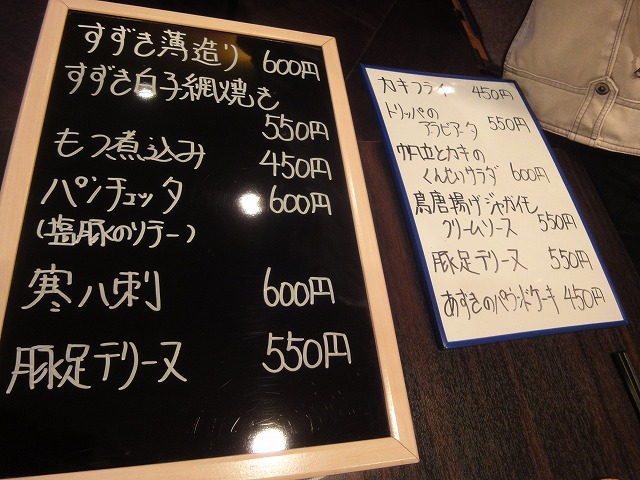 すずき薄造り 600円
すずき白子網焼き
550円
もつ煮込み 450円
パンチェッタ 600円
(塩豚のソテー)
寒八刺 600円
豚足テリーヌ 550円
カキフライ 450円
トリッパの
アラビアータ 550円
帆立とカキの
くんせいサラダ 600円
鳥唐揚げジャガイモ
クリームソース 550円
豚足テリーヌ 550円
あずきのパウンドケーキ 450円